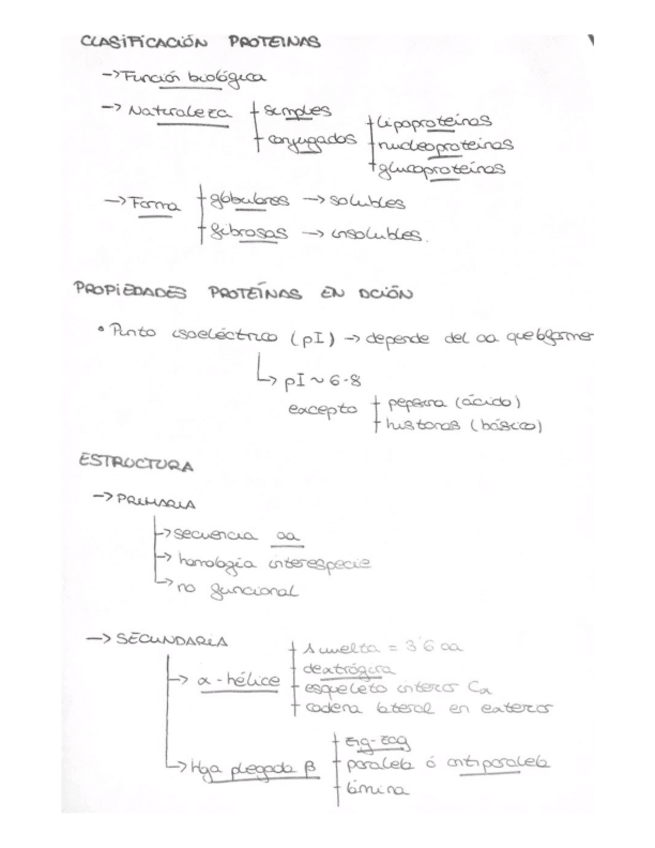 CLASIFICACIÓN PROTEINAS
→ Función biológica
→ Naturaleza
simples
conjugados
lipoproteinas
nucleoproteinas
glucoproteínas
→ Forma
globulares → solubles
fibrosas → insolubles.
PROPIEDADES PROTEÍNAS EN DCIÓN
• Punto isoeléctrico (pI) → depende del aa que lo formen
↳ pI ~ 6-8
excepto
pepsina (ácido)
histonas (básico)
ESTRUCTURA
→ PRIMARIA
→ secuencia aa
→ homología interespecie
→ no funcional
→ SECUNDARIA
→ α-hélice
1 vuelta = 3'6 aa
dextrógira
esqueleto interor Cα
cadena lateral en exterior
→ Hoja plegada β
zig-zag
paralela ó antiparalela
lámina